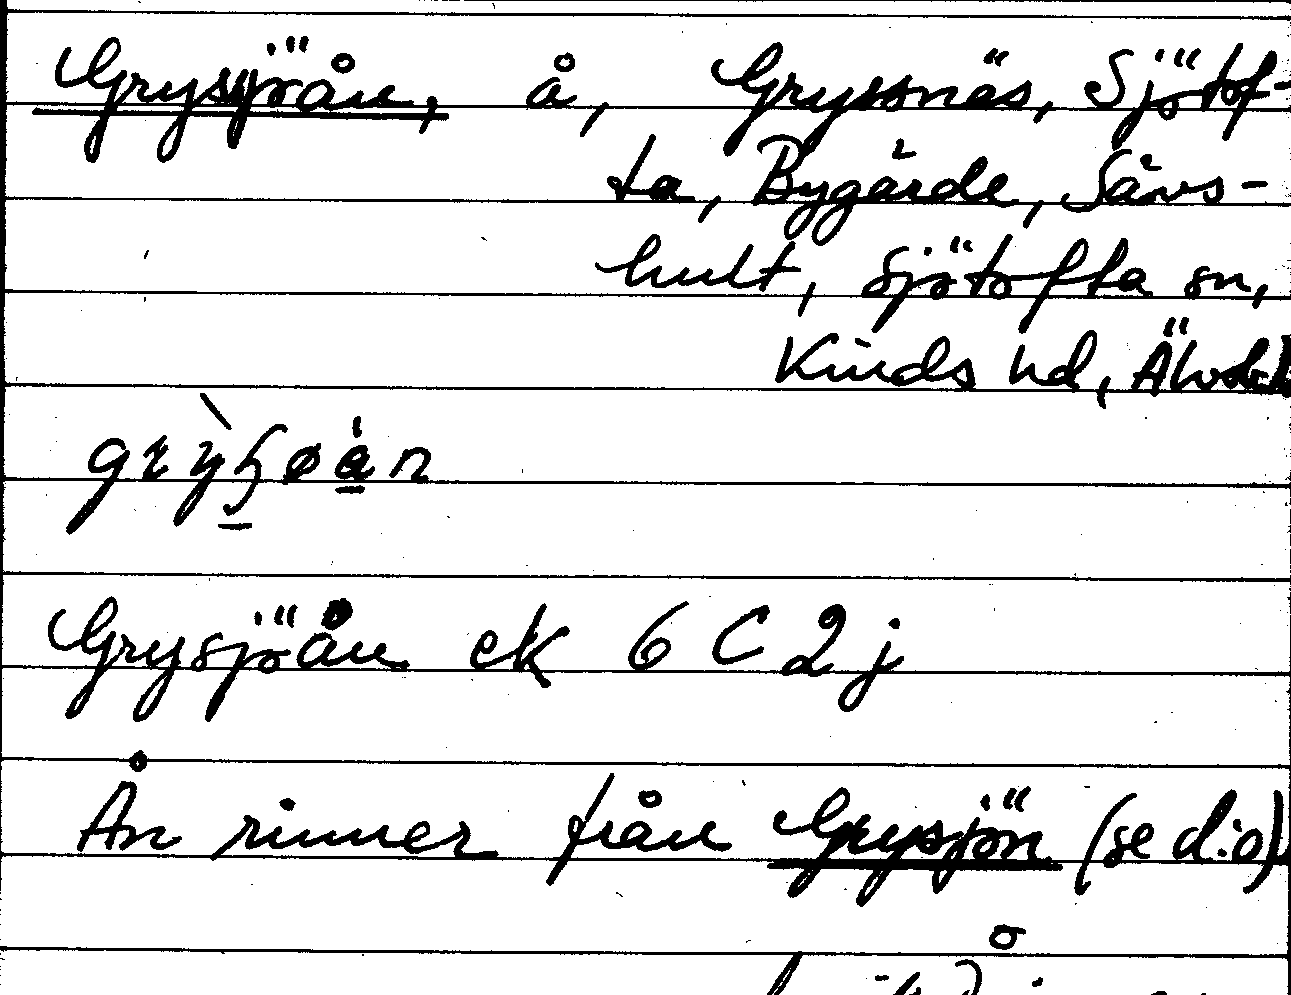 Grysjöån, å, Gryssnäs, Sjötof-
ta, Bygärde, Sävs-
hult, Sjötofta sn,
Kinds hd, Älvsb.l
Grysjöån ek 6 C 2 j
Ån rinner från Grysjön (se d:o)